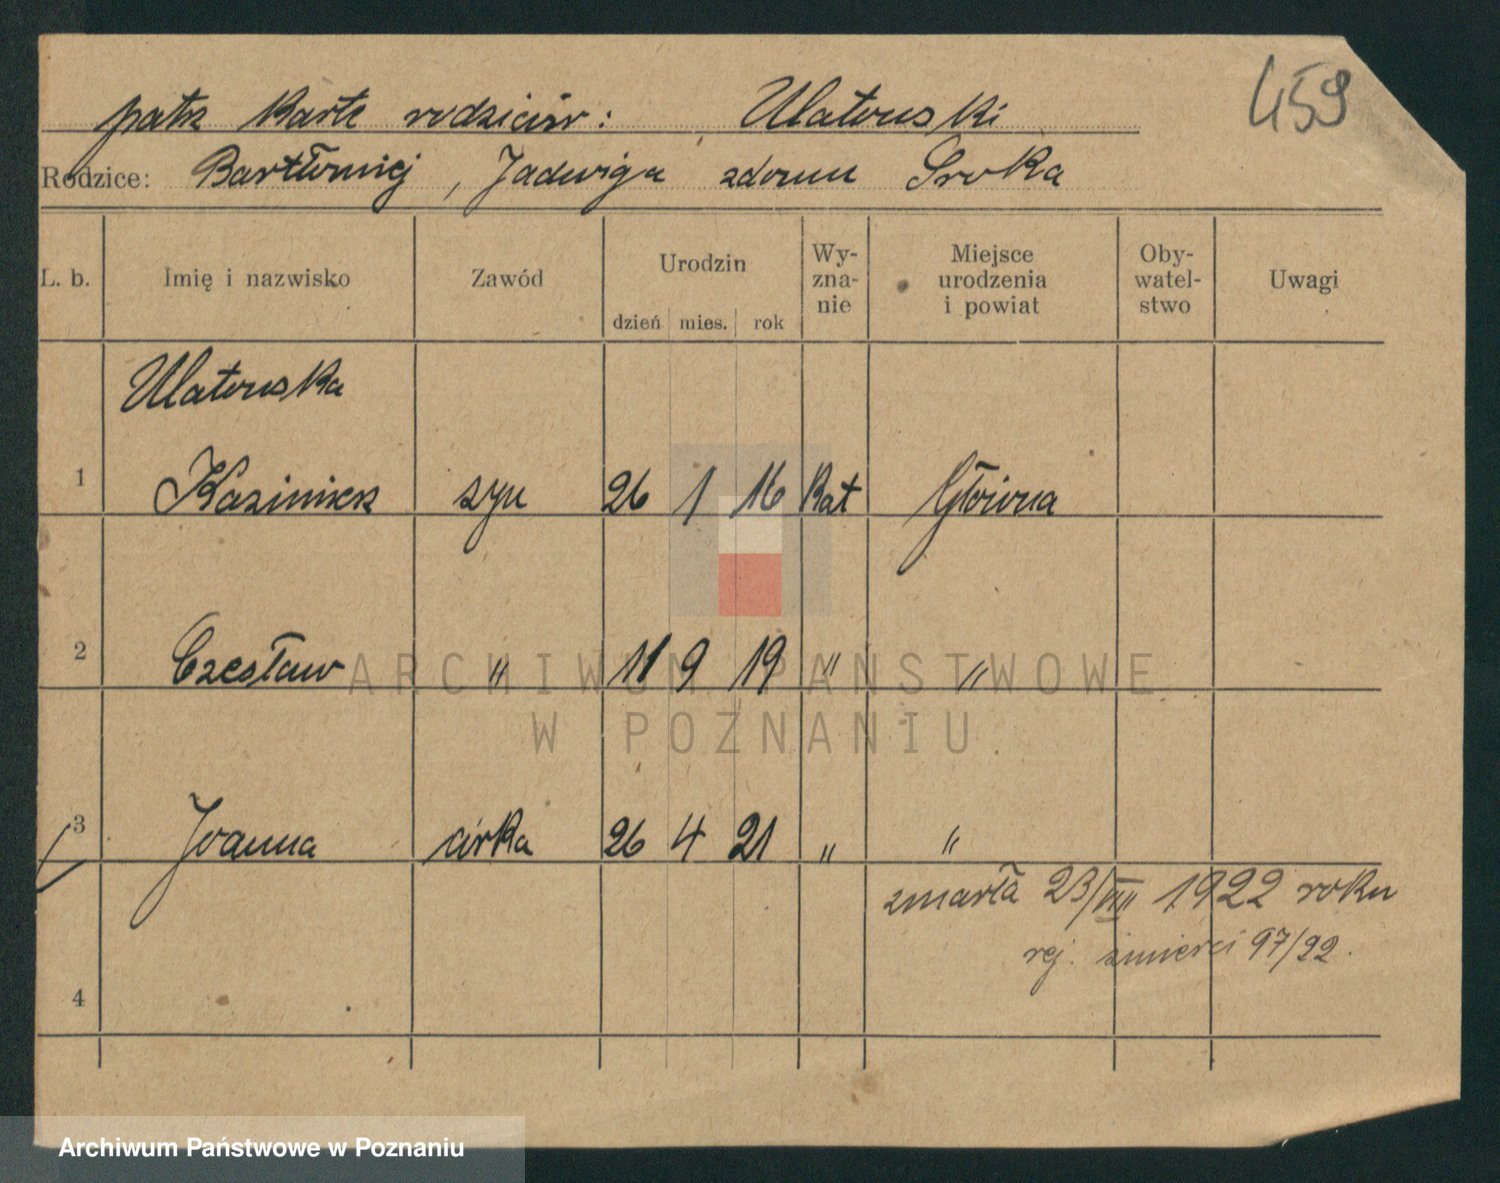 459
patrz Kartę rodziców: Ulatowski
Rodzice: Bartłomiej, Jadwiga zdomu Sroka
L. b. Imię i nazwisko Zawód Urodzin Wy-zna-nie Miejsce urodzenia i powiat Oby-watel-stwo Uwagi
dzień mies. rok
Ulatowska
1 Kazimierz syn 26 1 16 Kat Główna
2 Czesław " 11 9 19 " "
ARCHIWUM PAŃSTWOWE
W POZNANIU
3 Joanna córka 26 4 21 " "
zmarła 23/VIII 1922 roku
rej. śmierci 97/22.
4
Archiwum Państwowe w Poznaniu